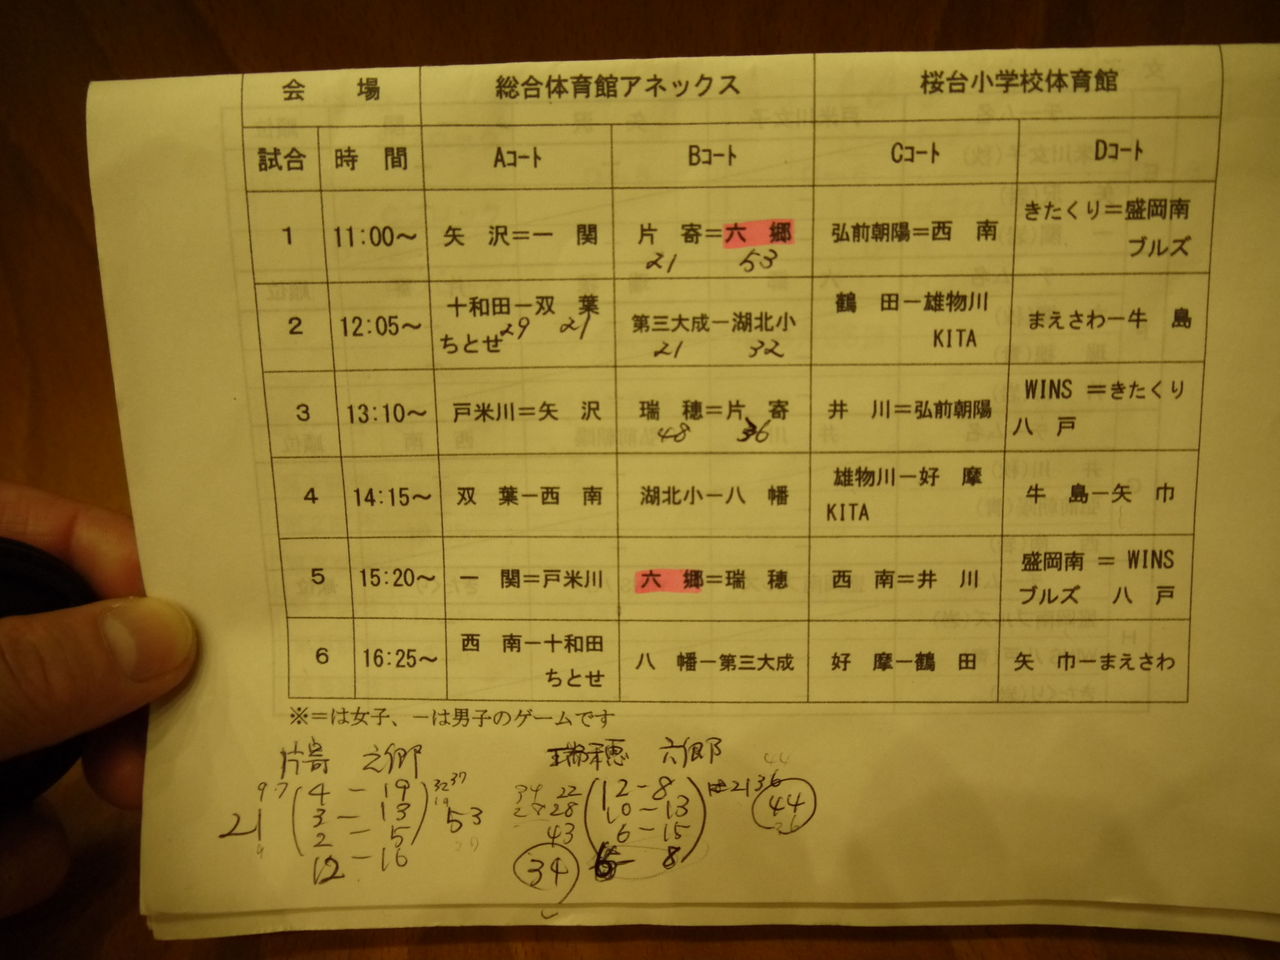 会　場　総合体育館アネックス　桜台小学校体育館
試合　時　間　Aコート　Bコート　Cコート　Dコート
1　11:00～　矢　沢＝一　関　片　寄＝六　郷　弘前朝陽＝西　南　きたくり＝盛岡南
ブルズ
21　53
2　12:05～　十和田－双　葉　第三大成－湖北小　鶴　田－雄物川　まえさわ－牛　島
ちとせ　29　21　KITA
21　32
3　13:10～　戸米川＝矢　沢　瑞　穂＝片　寄　井　川＝弘前朝陽　WINS ＝きたくり
八　戸
48　36
4　14:15～　双　葉－西　南　湖北小－八　幡　雄物川－好　摩　牛　島－矢　巾
KITA
5　15:20～　一　関＝戸米川　六　郷＝瑞　穂　西　南＝井　川　盛岡南 ＝ WINS
ブルズ　八　戸
6　16:25～　西　南－十和田　八　幡－第三大成　好　摩－鶴　田　矢　巾－まえさわ
ちとせ
※＝は女子、－は男子のゲームです
片寄　六郷　瑞穂　六郷
9 7　4 － 19　32 37　34　22　12 － 8　21 36　44
21　3 － 13　19　53　28　10 － 13
2 － 5　43　6 － 15
12 － 16　34　6 － 8